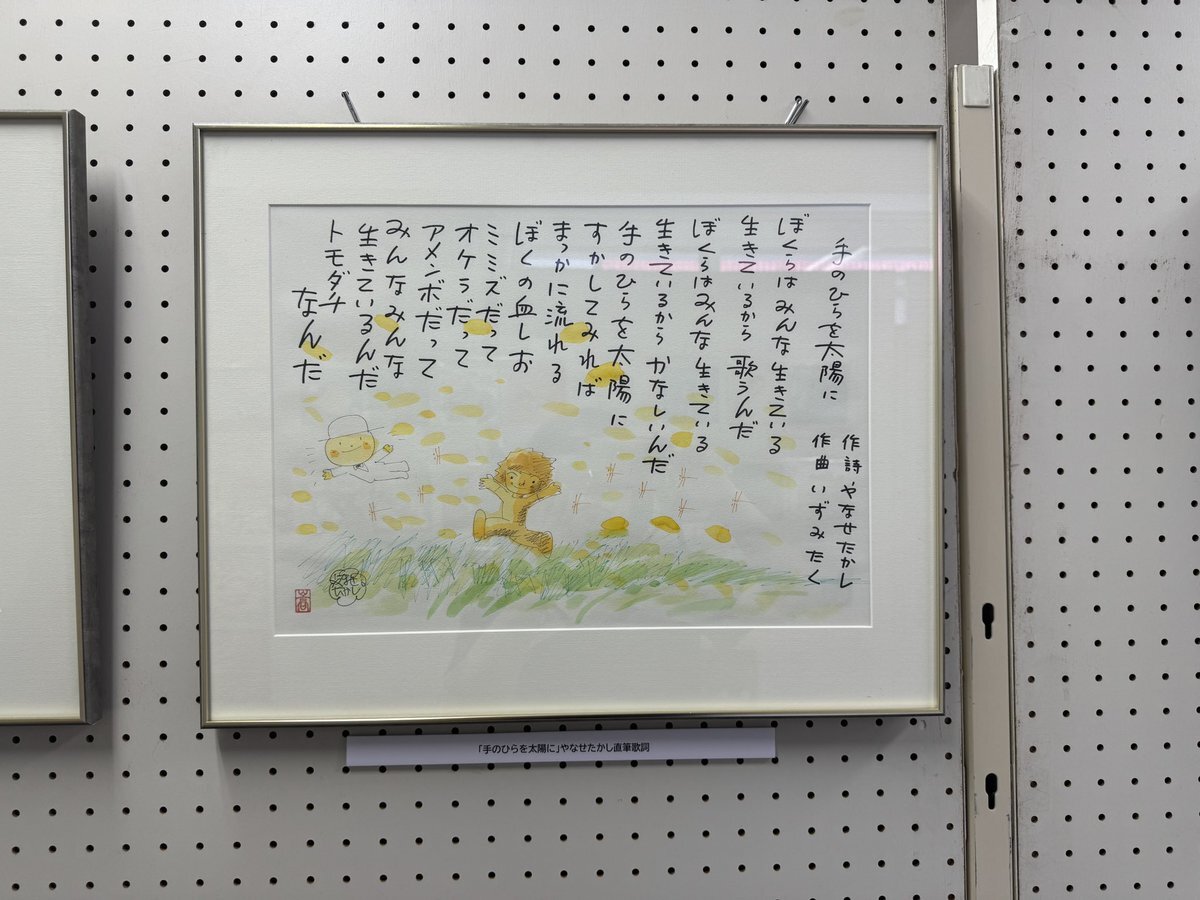 手のひらを太陽に
作詩 やなせたかし
作曲 いずみたく
ぼくらはみんな 生きている
生きているから 歌うんだ
ぼくらはみんな 生きている
生きているから かなしいんだ
手のひらを太陽に
すかしてみれば
まっかに流れる
ぼくの血しお
ミミズだって
オケラだって
アメンボだって
みんなみんな
生きているんだ
トモダチ
なんだ
やなせたかし
嵩
「手のひらを太陽に」やなせたかし直筆歌詞